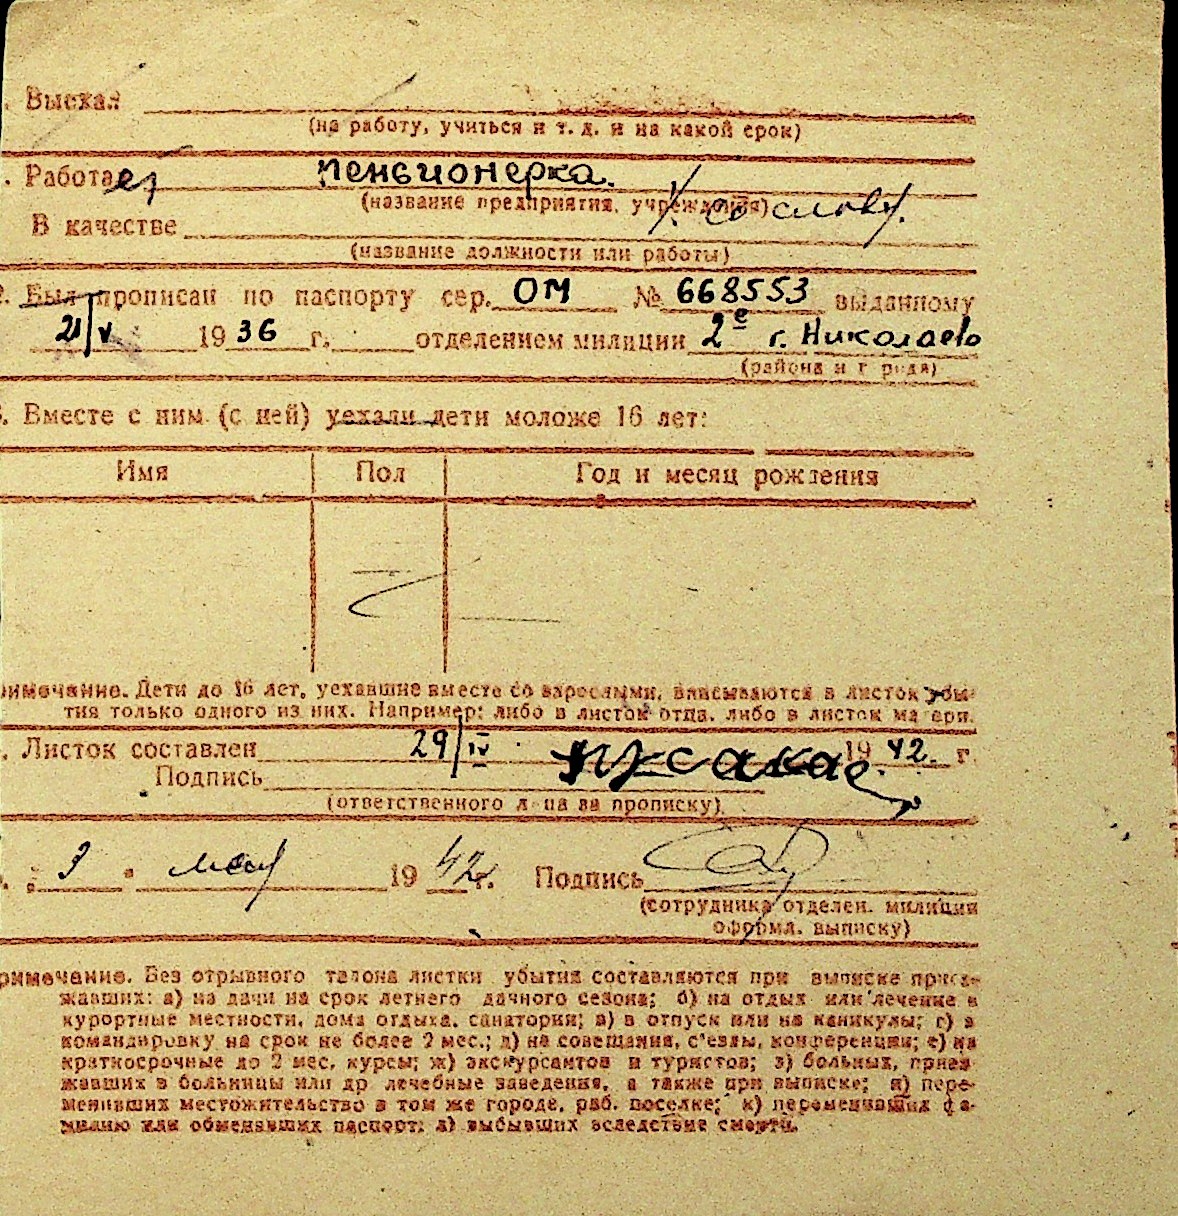 . Выехал
(на работу, учиться и т. д. и на какой срок)
. Работает пенсионерка.
(название предприятия, учреждения) со слов
В качестве
(название должности или работы)
2. Был прописан по паспорту сер. ОМ № 668553 выданному
21/V 1936 г. отделением милиции 2е г. Николаево
(района и города)
3. Вместе с ним (с ней) уехали дети моложе 16 лет:
Имя Пол Год и месяц рождения
римечание. Дети до 16 лет, уехавшие вместе со взрослыми, вписываются в листок убы-
тия только одного из них. Например: либо в листок отца, либо в листок матери.
. Листок составлен 29/IV 1942 г.
Подпись
(ответственного лица за прописку)
. „3" мая 1942 г. Подпись
(сотрудника отделен. милиции
оформл. выписку)
римечание. Без отрывного талона листки убытия составляются при выписке приез-
жавших: а) на дачи на срок летнего дачного сезона; б) на отдых или лечение в
курортные местности, дома отдыха, санатории; в) в отпуск или на каникулы; г) в
командировку на срок не более 2 мес.; д) на совещания, с'езды, конференции; е) на
краткосрочные до 2 мес. курсы; ж) экскурсантов и туристов; з) больных, приез-
жавших в больницы или др лечебные заведения, а также при выписке; и) пере-
менивших местожительство в том же городе, раб. поселке; к) переменивших фа-
милию или обменявших паспорт; л) выбывших вследствие смерти.